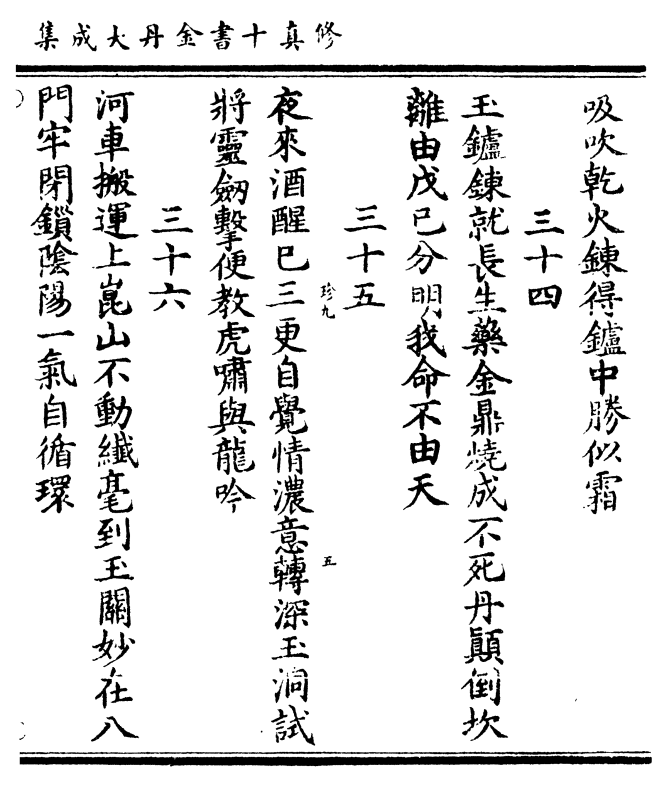 修真十書金丹大成集
吸吹乾火鍊得鑪中勝似霜
三十四
玉鑪鍊就長生藥金鼎燒成不死丹顚倒坎
離由戊已分明我命不由天
三十五
珍九
五
夜來酒醒已三更自覺情濃意轉深玉洞試
將靈劒擊便教虎嘯與龍吟
三十六
河車搬運上崑山不動纖毫到玉關妙在八
門牢閉鎖陰陽一氣自循環